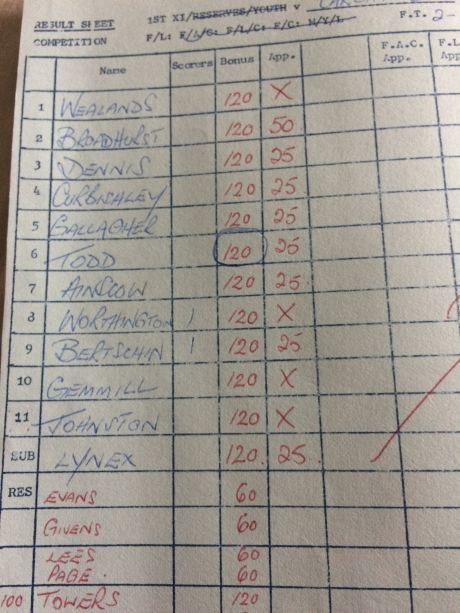 RESULT SHEET 1ST XI/RESERVES/YOUTH v
COMPETITION F/L: F/L/C: F/A/C: F/C: M/Y/L F.T. 2-
Name Scorers Bonus App. F.A.C. App. F.L App
1 WEALANDS 120 X
2 BROADHURST 120 50
3 DENNIS 120 25
4 CURBISHLEY 120 25
5 GALLAGHER 120 25
6 TODD 120 25
7 AINSCOW 120 25
8 WORTHINGTON 1 120 X
9 BERTSCHIN 1 120 25
10 GEMMILL 120 X
11 JOHNSTON 120 X
SUB LYNEX 120. 25.
RES EVANS 60
GIVENS 60
LEES 60
PAGE. 60
100 TOWERS 120